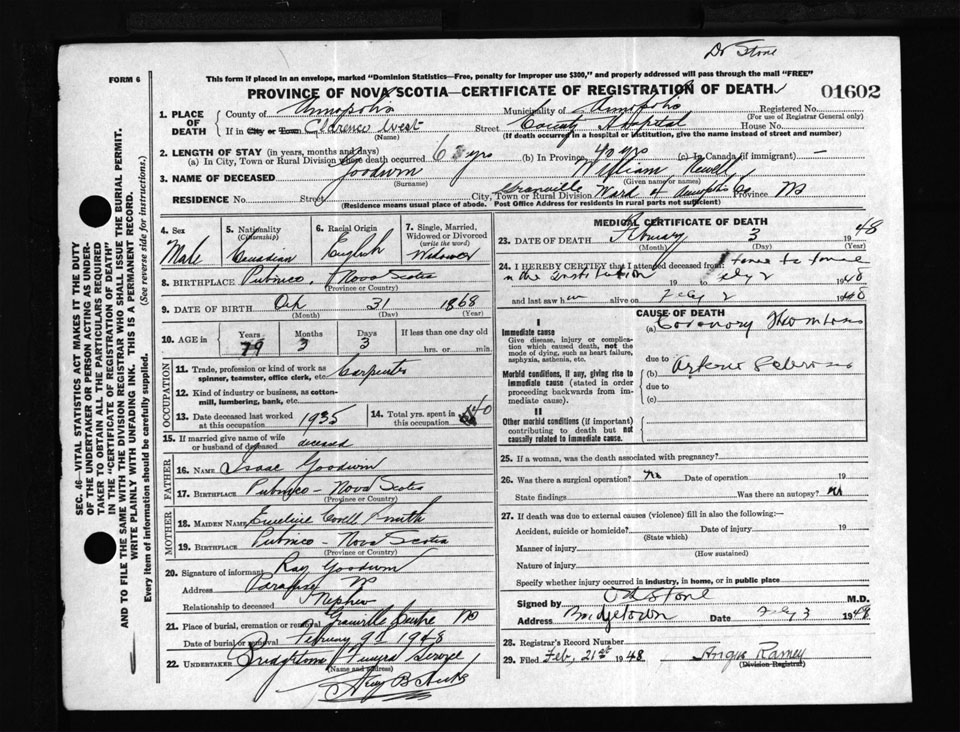 Dr Stone
FORM 6
This form if placed in an envelope, marked "Dominion Statistics—Free, penalty for improper use $300," and properly addressed will pass through the mail "FREE"
PROVINCE OF NOVA SCOTIA—CERTIFICATE OF REGISTRATION OF DEATH
01602
1. PLACE OF DEATH
County of Annapolis Municipality of Annapolis Registered No.
(For use of Registrar General only)
If in City or Town Clarence West Street County Hospital House No.
(Name) (If death occurred in a hospital or institution, give the name instead of street and number)
2. LENGTH OF STAY (in years, months and days)
(a) In City, Town or Rural Division where death occurred 6 yrs (b) In Province 40 yrs (c) In Canada (if immigrant) —
3. NAME OF DECEASED Goodwin William
(Surname) (Given name or names)
RESIDENCE No. Street City, Town or Rural Division Granville Ward Annapolis Co. Province NS
(Residence means usual place of abode. Post Office Address for residents in rural parts not sufficient)
4. Sex Male
5. Nationality (Citizenship) Canadian
6. Racial Origin English
7. Single, Married, Widowed or Divorced (write the word) Widower
8. BIRTHPLACE Pubnico, Nova Scotia
(Province or Country)
9. DATE OF BIRTH Oct 31 1868
(Month) (Day) (Year)
10. AGE in Years 79 Months 3 Days 3 If less than one day old
hrs. or min.
OCCUPATION
11. Trade, profession or kind of work as spinner, teamster, office clerk, etc. Carpenter
12. Kind of industry or business, as cotton-mill, lumbering, bank, etc.
13. Date deceased last worked at this occupation 1935
14. Total yrs. spent in this occupation 40
15. If married give name of wife or husband of deceased deceased
FATHER
16. NAME Isaac Goodwin
17. BIRTHPLACE Pubnico - Nova Scotia
(Province or Country)
MOTHER
18. MAIDEN NAME Emeline Smith
19. BIRTHPLACE Pubnico - Nova Scotia
(Province or Country)
20. Signature of informant Ray Goodwin
Address Paradise NS
Relationship to deceased Nephew
21. Place of burial, cremation or removal Granville Centre NS
Date of burial or removal February 9th 1948
22. UNDERTAKER Bridgetown Funeral Service
(Name and address)
MEDICAL CERTIFICATE OF DEATH
23. DATE OF DEATH February 3 1948
(Month) (Day) (Year)
24. I HEREBY CERTIFY that I attended deceased from time to time
in the Institution 19 to Feby 2 1948
and last saw him alive on Feby 2 1948
CAUSE OF DEATH
I
Immediate cause
Give disease, injury or complication which caused death, not the mode of dying, such as heart failure, asphyxia, asthenia, etc.
(a) Coronary Thrombosis
due to
Morbid conditions, if any, giving rise to immediate cause (stated in order proceeding backwards from immediate cause).
(b) Arterio Sclerosis
due to
(c)
II
Other morbid conditions (if important) contributing to death but not causally related to immediate cause.
25. If a woman, was the death associated with pregnancy?
26. Was there a surgical operation? No Date of operation 19
State findings Was there an autopsy? No
27. If death was due to external causes (violence) fill in also the following:—
Accident, suicide or homicide? Date of injury 19
(State which)
Manner of injury
(How sustained)
Nature of injury
Specify whether injury occurred in industry, in home, or in public place
Signed by Stone M.D.
Address Bridgetown Date Feby 3 1948
28. Registrar's Record Number
29. Filed Feb. 21st 1948 Angus Ramey
(Division Registrar)
SEC. 46—VITAL STATISTICS ACT MAKES IT THE DUTY
OF THE UNDERTAKER OR PERSON ACTING AS UNDER-
TAKER TO OBTAIN ALL THE PARTICULARS REQUIRED
IN THE "CERTIFICATE OF REGISTRATION OF DEATH"
AND TO FILE THE SAME WITH THE DIVISION REGISTRAR WHO SHALL ISSUE THE BURIAL PERMIT.
WRITE PLAINLY WITH UNFADING INK. THIS IS A PERMANENT RECORD.
Every item of information should be carefully supplied. (See reverse side for instructions.)